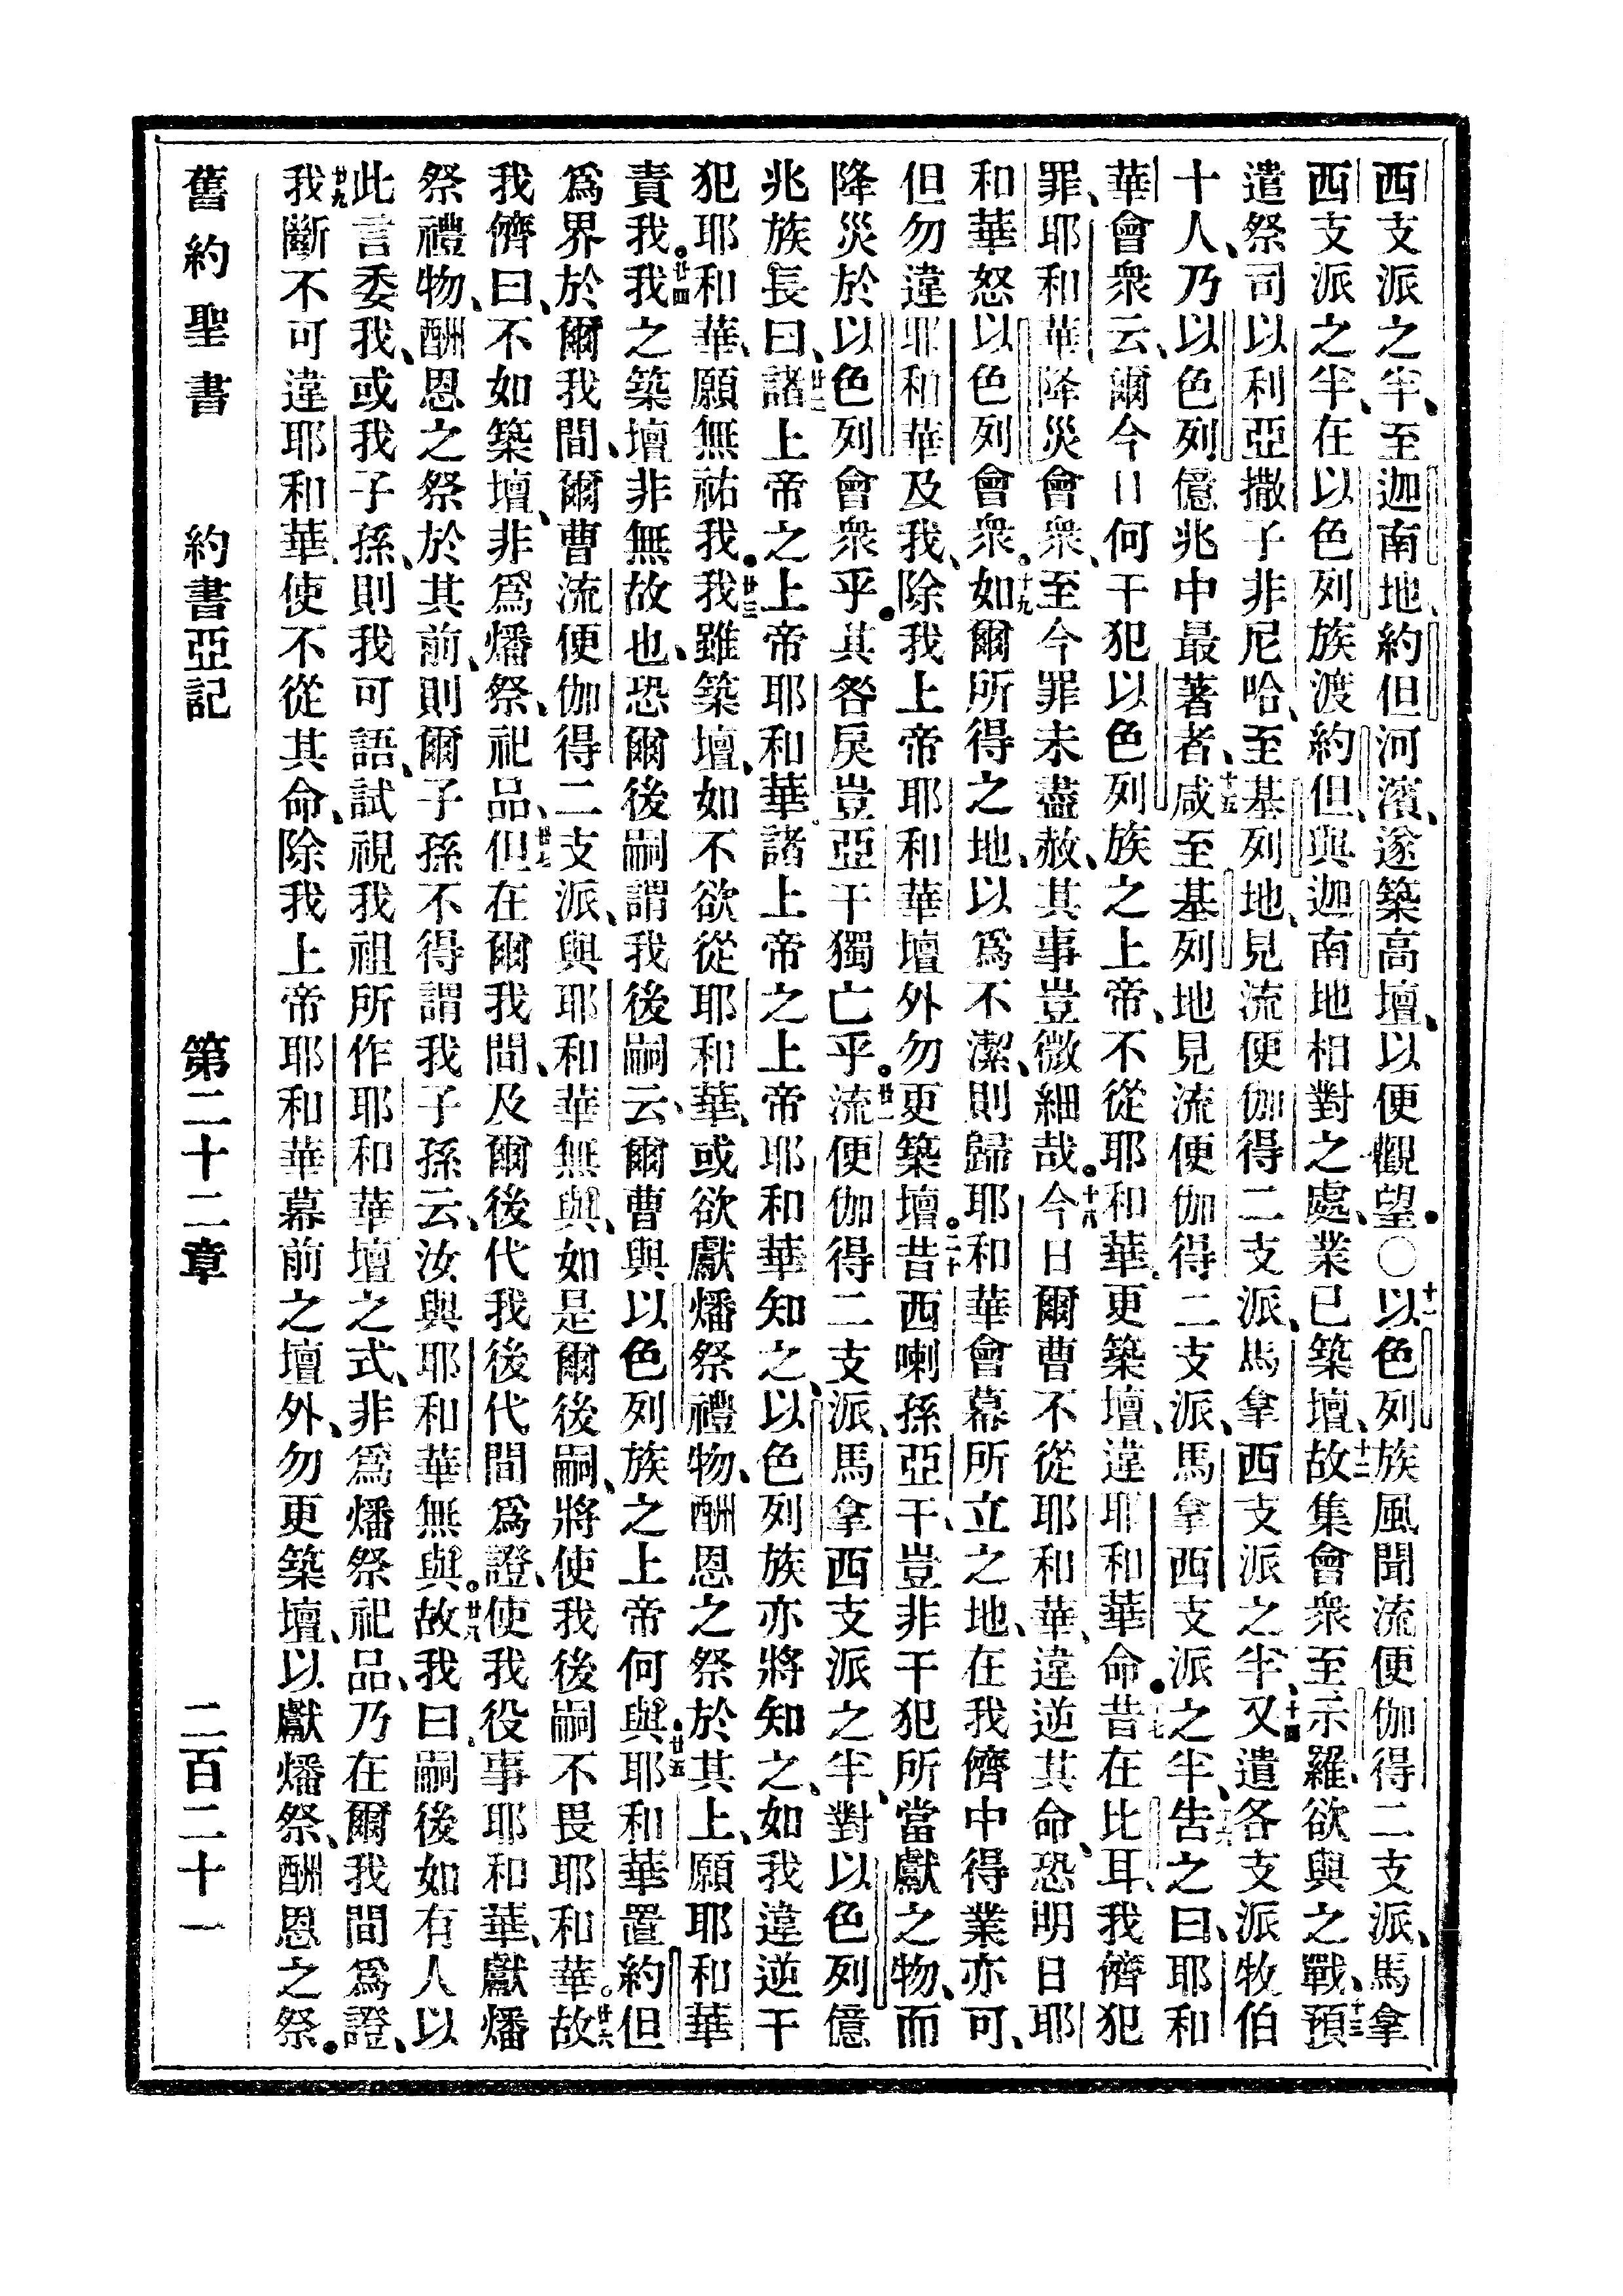 西支派之半、至迦南地、約但河濱、遂築高壇、以便觀望。○十一以色列族風聞流便伽得二支派、馬拿
西支派之半、在以色列族渡約但、與迦南地相對之處、業已築壇、十二故集會衆至示羅、欲與之戰、十三預
遣祭司以利亞撒子非尼哈、至基列地、見流便伽得二支派、馬拿西支派之半、十四又遣各支派牧伯
十人、乃以色列億兆中最著者、十五咸至基列地見流便伽得二支派、馬拿西支派之半、十六告之曰、耶和
華會衆云、爾今日何干犯以色列族之上帝、不從耶和華、更築壇、違耶和華命。十七昔在比耳、我儕犯
罪、耶和華降災會衆、至今罪未盡赦、其事豈微細哉。十八今日爾曹不從耶和華、違逆其命、恐明日耶
和華怒以色列會衆。十九如爾所得之地、以爲不潔、則歸耶和華會幕所立之地、在我儕中得業亦可、
但勿違耶和華及我、除我上帝耶和華壇外勿更築壇。二十昔西喇孫亞干、豈非干犯所當獻之物、而
降災於以色列會衆乎。其咎戾豈亞干獨亡乎。廿一流便伽得二支派、馬拿西支派之半、對以色列億
兆族長曰、廿二諸上帝之上帝耶和華、諸上帝之上帝耶和華知之、以色列族亦將知之、如我違逆干
犯耶和華、願無祐我。廿三我雖築壇、如不欲從耶和華、或欲獻燔祭禮物、酬恩之祭於其上、願耶和華
責我。廿四我之築壇非無故也、恐爾後嗣謂我後嗣云、爾曹與以色列族之上帝何與。廿五耶和華置約但
爲界於爾我間、爾曹流便伽得二支派、與耶和華無與、如是爾後嗣、將使我後嗣不畏耶和華。廿六故
我儕曰、不如築壇、非爲燔祭、祀品、廿七但在爾我間、及爾後代我後代間爲證、使我役事耶和華、獻燔
祭禮物、酬恩之祭於其前、則爾子孫不得謂我子孫云、汝與耶和華無與。廿八故我曰、嗣後如有人以
此言委我、或我子孫、則我可語、試視我祖所作耶和華壇之式、非爲燔祭祀品、乃在爾我間爲證、
廿九我斷不可違耶和華、使不從其命、除我上帝耶和華幕前之壇外、勿更築壇、以獻燔祭、酬恩之祭。
舊約聖書 約書亞記 第二十二章 二百二十一